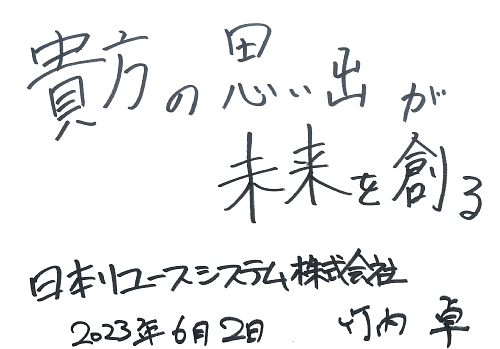 貴方の思い出が
未来を創る
日本リユースシステム株式会社
2023年6月2日 竹内 卓